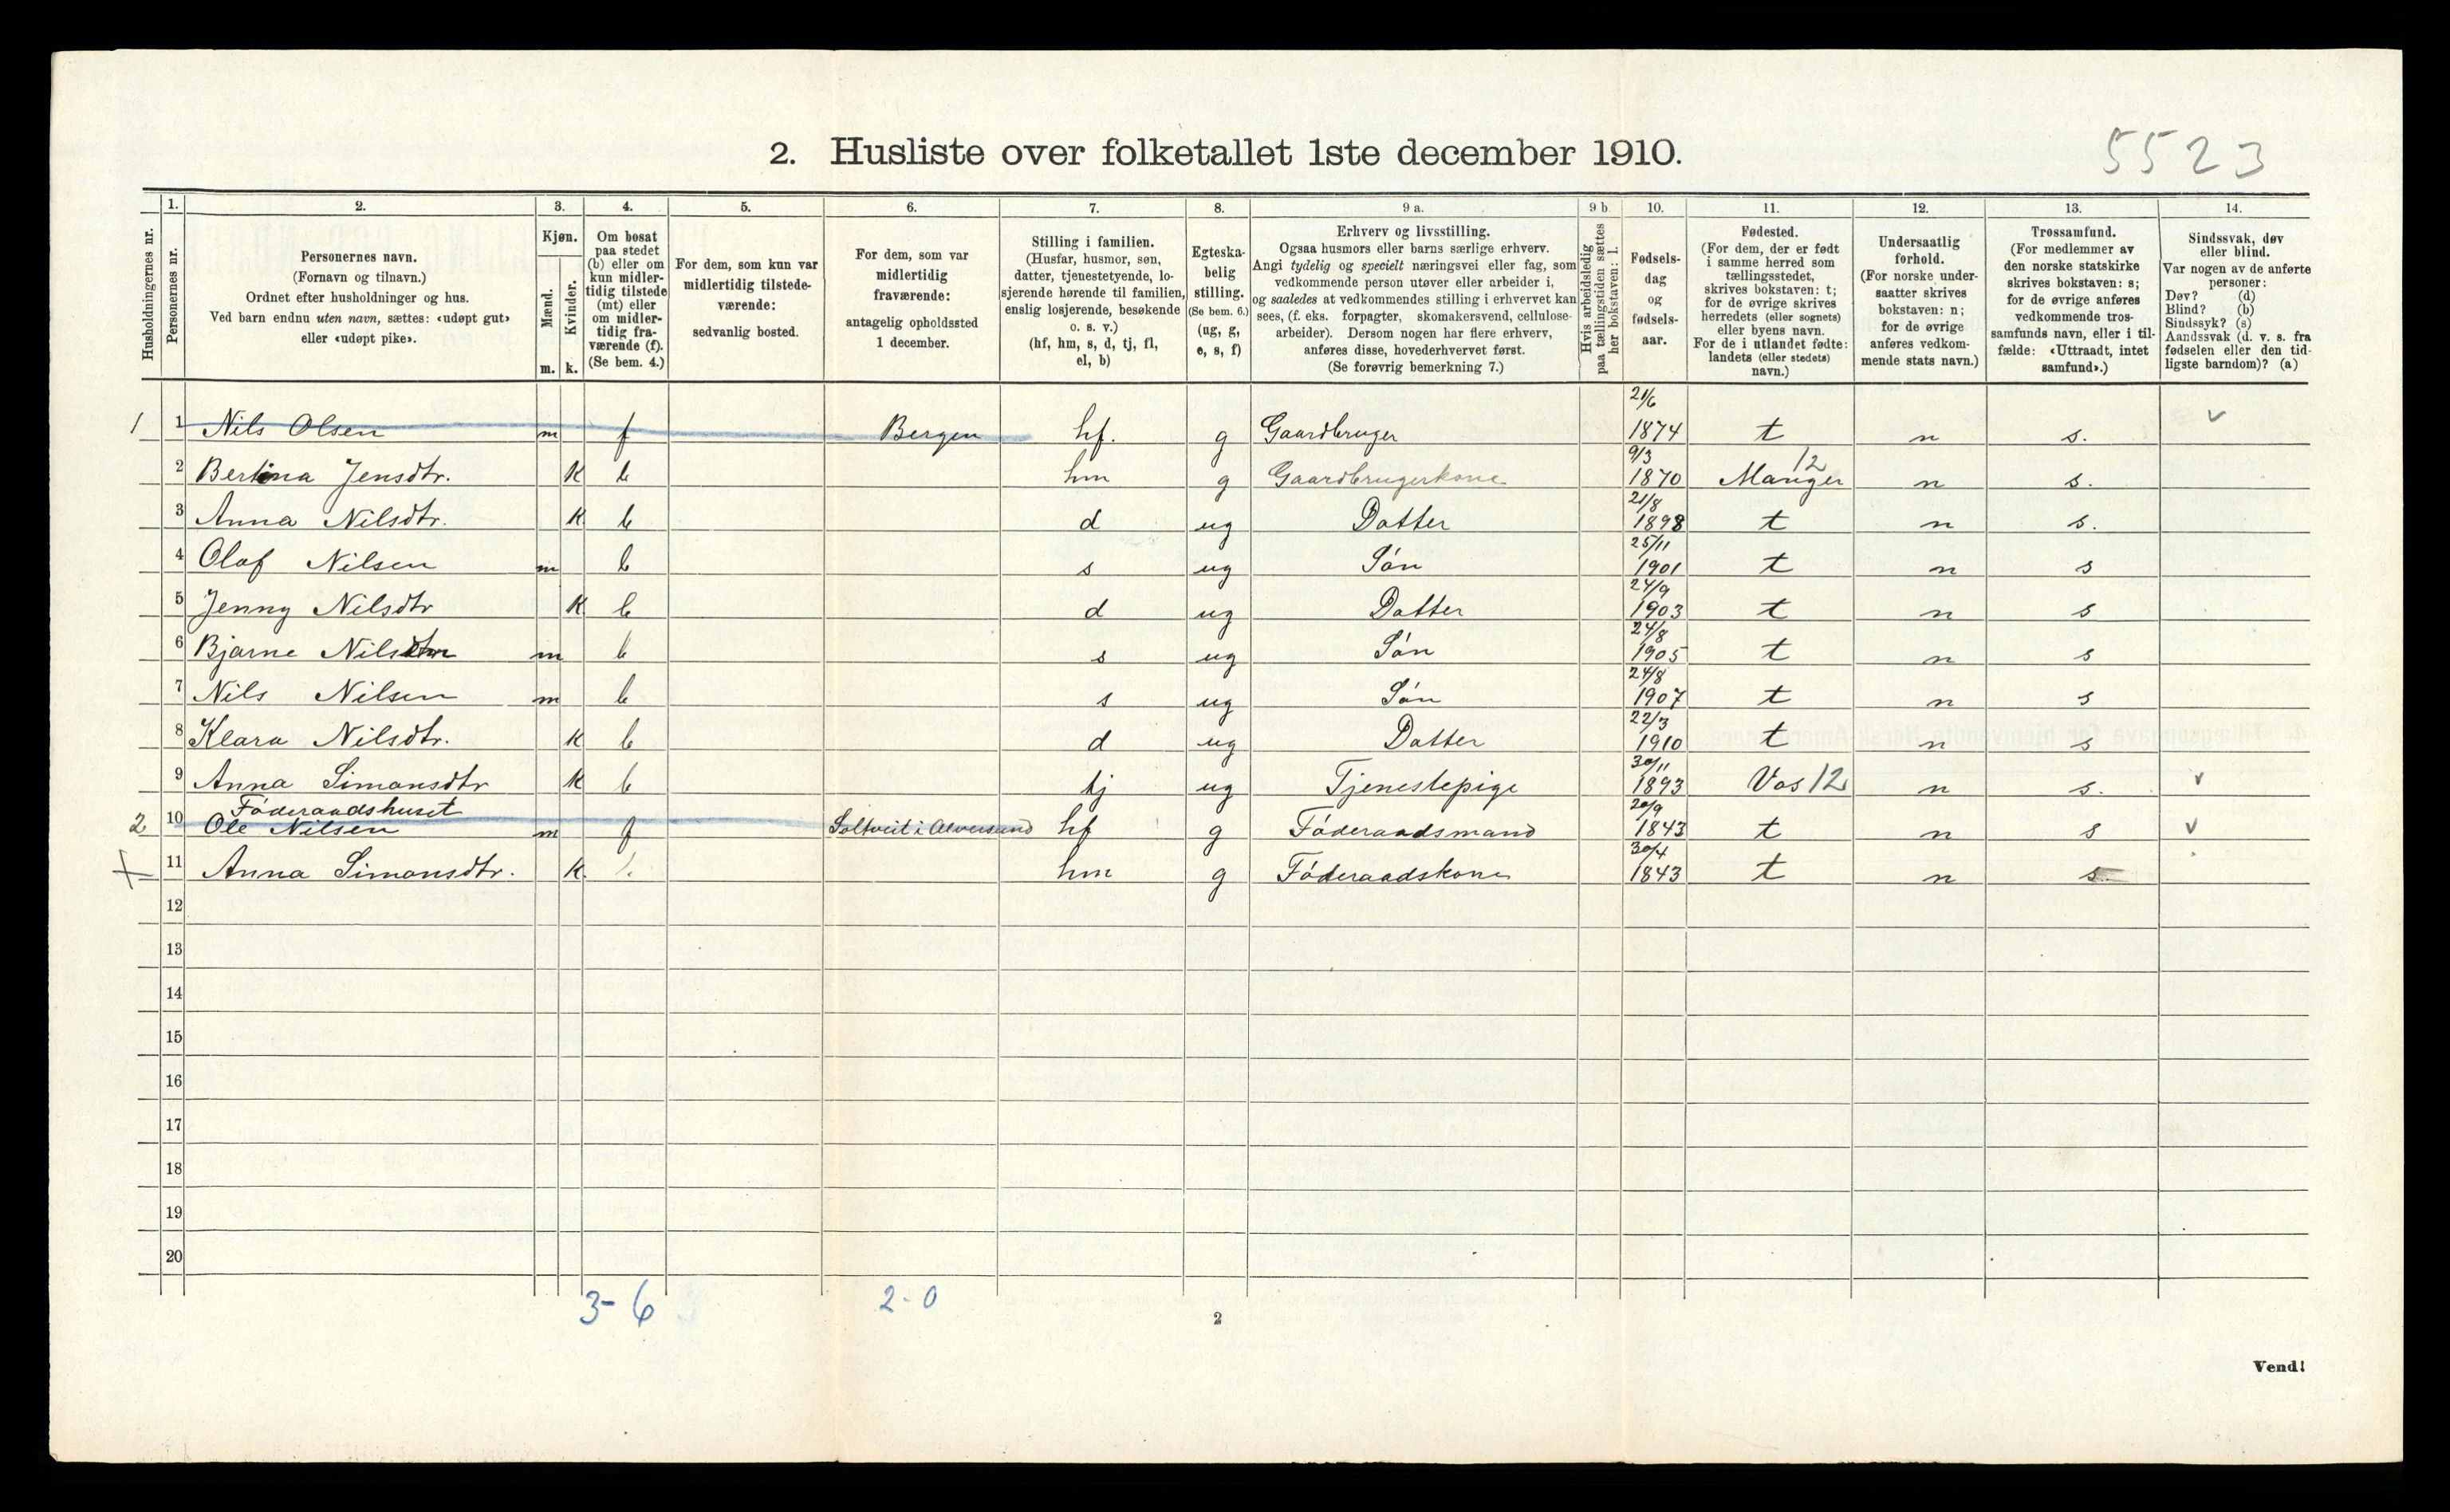 2. Husliste over folketallet 1ste december 1910.
5523
Husholdningernes nr.
1. Personernes nr.
2. Personernes navn.
(Fornavn og tilnavn.)
Ordnet efter husholdninger og hus.
Ved barn endnu uten navn, sættes: «udøpt gut»
eller «udøpt pike».
3. Kjøn.
Mænd. m.
Kvinder. k.
4. Om bosat
paa stedet
(b) eller om
kun midler-
tidig tilstede
(mt) eller
om midler-
tidig fra-
værende (f).
(Se bem. 4.)
5. For dem, som kun var
midlertidig tilstede-
værende:
sedvanlig bosted.
6. For dem, som var
midlertidig
fraværende:
antagelig opholdssted
1 december.
7. Stilling i familien.
(Husfar, husmor, søn,
datter, tjenestetyende, lo-
sjerende hørende til familien,
enslig losjerende, besøkende
o. s. v.)
(hf, hm, s, d, tj, fl,
el, b)
8. Egteska-
belig
stilling.
(Se bem. 6.)
(ug, g,
e, s, f)
9 a. Erhverv og livsstilling.
Ogsaa husmors eller barns særlige erhverv.
Angi tydelig og specielt næringsvei eller fag, som
vedkommende person utøver eller arbeider i,
og saaledes at vedkommendes stilling i erhvervet kan
sees, (f. eks. forpagter, skomakersvend, cellulose-
arbeider). Dersom nogen har flere erhverv,
anføres disse, hovederhvervet først.
(Se forøvrig bemerkning 7.)
9 b. Hvis arbeidsledig
paa tællingstiden sættes
her bokstaven: l.
10. Fødsels-
dag
og
fødsels-
aar.
11. Fødested.
(For dem, der er født
i samme herred som
tællingsstedet,
skrives bokstaven: t;
for de øvrige skrives
herredets (eller sognets)
eller byens navn.
For de i utlandet fødte:
landets (eller stedets)
navn.)
12. Undersaatlig
forhold.
(For norske under-
saatter skrives
bokstaven: n;
for de øvrige
anføres vedkom-
mende stats navn.)
13. Trossamfund.
(For medlemmer av
den norske statskirke
skrives bokstaven: s;
for de øvrige anføres
vedkommende tros-
samfunds navn, eller i til-
fælde: «Uttraadt, intet
samfund».)
14. Sindssvak, døv
eller blind.
Var nogen av de anførte
personer:
Døv? (d)
Blind? (b)
Sindssyk? (s)
Aandssvak (d. v. s. fra
fødselen eller den tid-
ligste barndom)? (a)
1 1 Nils Olsen m f Bergen hf. g Gaardbruger 21/6 1874 t n s. v
2 Bertina Jensdtr. K b hm g Gaardbrugerkone 9/3 1870 Manger 12 n s.
3 Anna Nilsdtr. K b d ug Datter 21/8 1898 t n s.
4 Olaf Nilsen m b s ug Søn 25/11 1901 t n s
5 Jenny Nilsdtr K b d ug Datter 24/9 1903 t n s
6 Bjarne m b s ug Søn 24/8 1905 t n s
7 Nils Nilsen m b s ug Søn 24/8 1907 t n s
8 Klara Nilsdtr. K b d ug Datter 22/3 1910 t n s
9 Anna Simonsdtr K b tj ug Tjenestepige 30/11 1893 Vos 12 n s. v
Føderaadshuset
2 10 Ole Nilsen m f Soltveit i Alversund hf g Føderaadsmand 20/9 1843 t n s v
+ 11 Anna Simonsdtr. K. hm g Føderaadskone 30/4 1843 t n s
12
13
14
15
16
17
18
19
20
3-6 2-0
2
Vend!